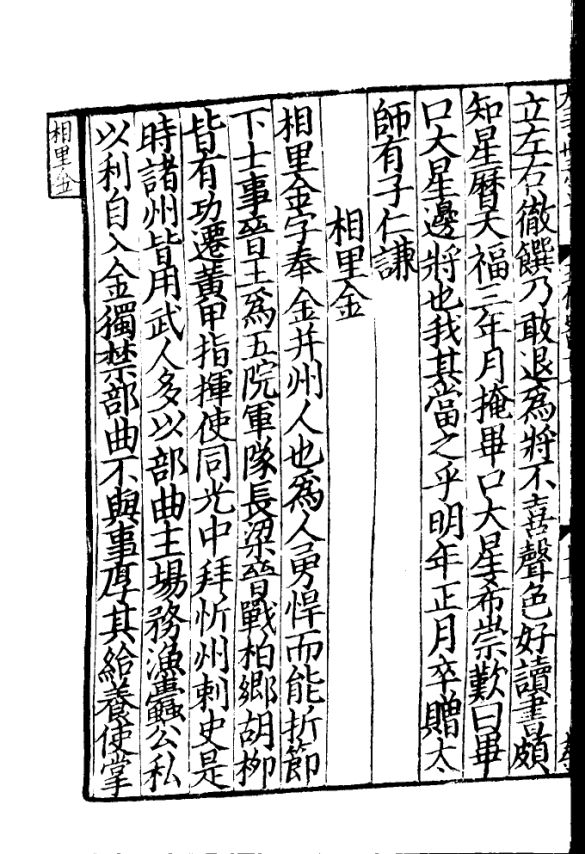 立左右徹饌乃敢退爲將不喜聲色好讀書頗
知星曆天福三年月掩畢口大星希崇歎曰畢
口大星邊將也我其當之乎明年正月卒贈太
師有子仁謙
相里金
相里金字奉金并州人也爲人勇悍而能折節
下士事晉王爲五院軍隊長梁晉戰柏鄉胡柳
皆有功遷黃甲指揮使同光中拜忻州刺史是
時諸州皆用武人多以部曲主場務漁蠹公私
以利自入金獨禁部曲不與事厚其給養使掌
相里金